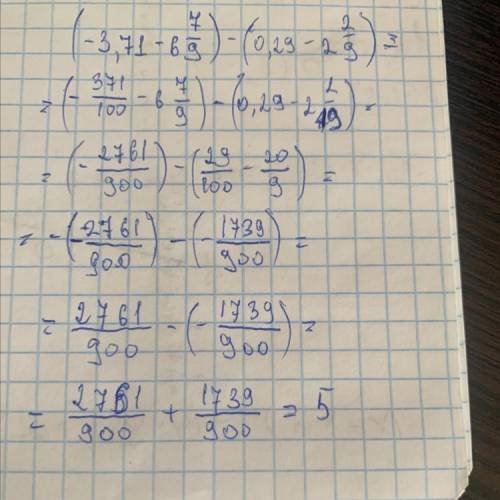 (-3,71 - 6 7/9) - (0,29 - 2 2/9) =
= (- 371/100 - 6 7/9) - (0,29 - 2 2/9) =
= (- 2761/900) - (29/100 - 20/9) =
= - (- 2761/900) - (- 1739/900) =
= 2761/900 - (- 1739/900) =
= 2761/900 + 1739/900 = 5